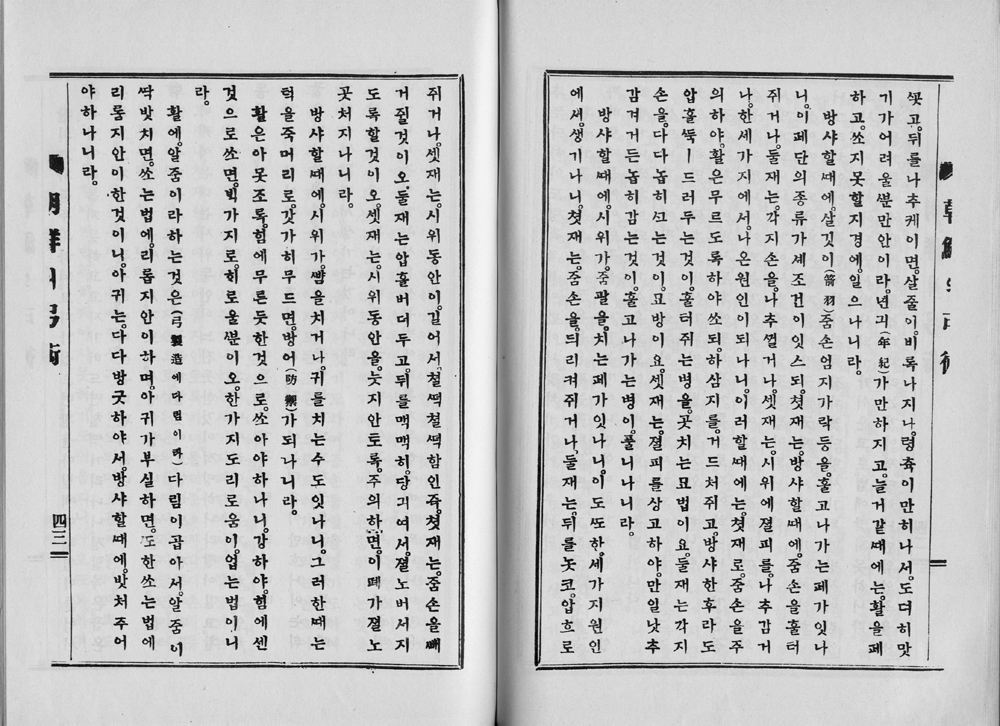 쏫고。뒤를나추케이면。살줄이。비록나지나。령츅이만히나서。도뎌히맛
기가어려울분만안이라。년긔(年紀)가만하지고。늘거갈때에는。활을폐
하고。쏘지못할지경에。일으나니라。
방샤할때에。살깃이(箭羽)줌손엄지가락등을。훌고나가는폐가잇나
니。이폐단의종류가셰조건이잇스되。쳣재는。방샤할때에。줌손을훌터
쥐거나。둘재는。각지손을。나추껄거나。셋재는。시위에졀피를。나추감거
나。한세가지에서。나온원인이되나니。이러할때에는。쳣재로。줌손을주
의하야。활은무르도록하야쏘되。하삼지를。거드쳐쥐고。방사한후라도
압흘뚝ㅣ드러두는것이。훌터쥐는병을。곳치는묘법이요。둘재는각지
손을。다다놉히쓰는것이。묘방이요。셋재는。졀피를상고하야。만일낫추
감겨거든놉히감는것이。훌고나가는병이。풀니나니라。
방샤할때에。시위가。줌팔을。치는폐가잇나니。이도또한。세가지원인
에셔。생기나니。쳣재는。줌손을。듸리켜쥐거나。둘재는뒤를놋코。압흐로
쥐거나。셋재는。시위동안이。길어서。철떡철떡함인즉。쳣재는。줌손을빼
거쥘것이오。둘재는압흘버더두고。뒤를맥맥히。당긔여서。졀노버서지
도록할것이오。셋재는。시위동안을。늣지안토록。주의하면。이폐가졀노
곳쳐지나니라。
방샤할때에。시위가。뺨을치거나。귀를치는수도잇나니。그러한때는
턱을죽머리로。갓가히무드면。방어(防禦)가되나니라。
활은아못조록。힘에무른듯한것으로。쏘아야하나니。강하야。힘에센
것으로쏘면。빅가지로。히로울분이오。한가지도리로움이。업는법이니
라。
활에。알줌이라하는것은(弓製造에다림이라)다림이곱아서。알줌이
싹밧치면。쏘는법에。리롭지안이하며。아귀가부실하면。또한쏘는법에
리롭지안이한것이니。아귀는。다다밤긋하야서。방샤할때에。밧쳐주어
야하나니라。
四三